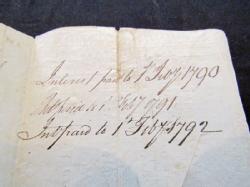 Interest paid to 1st Feby 1790
to 1st Feby 1791
Int paid to 1st Feby 1792